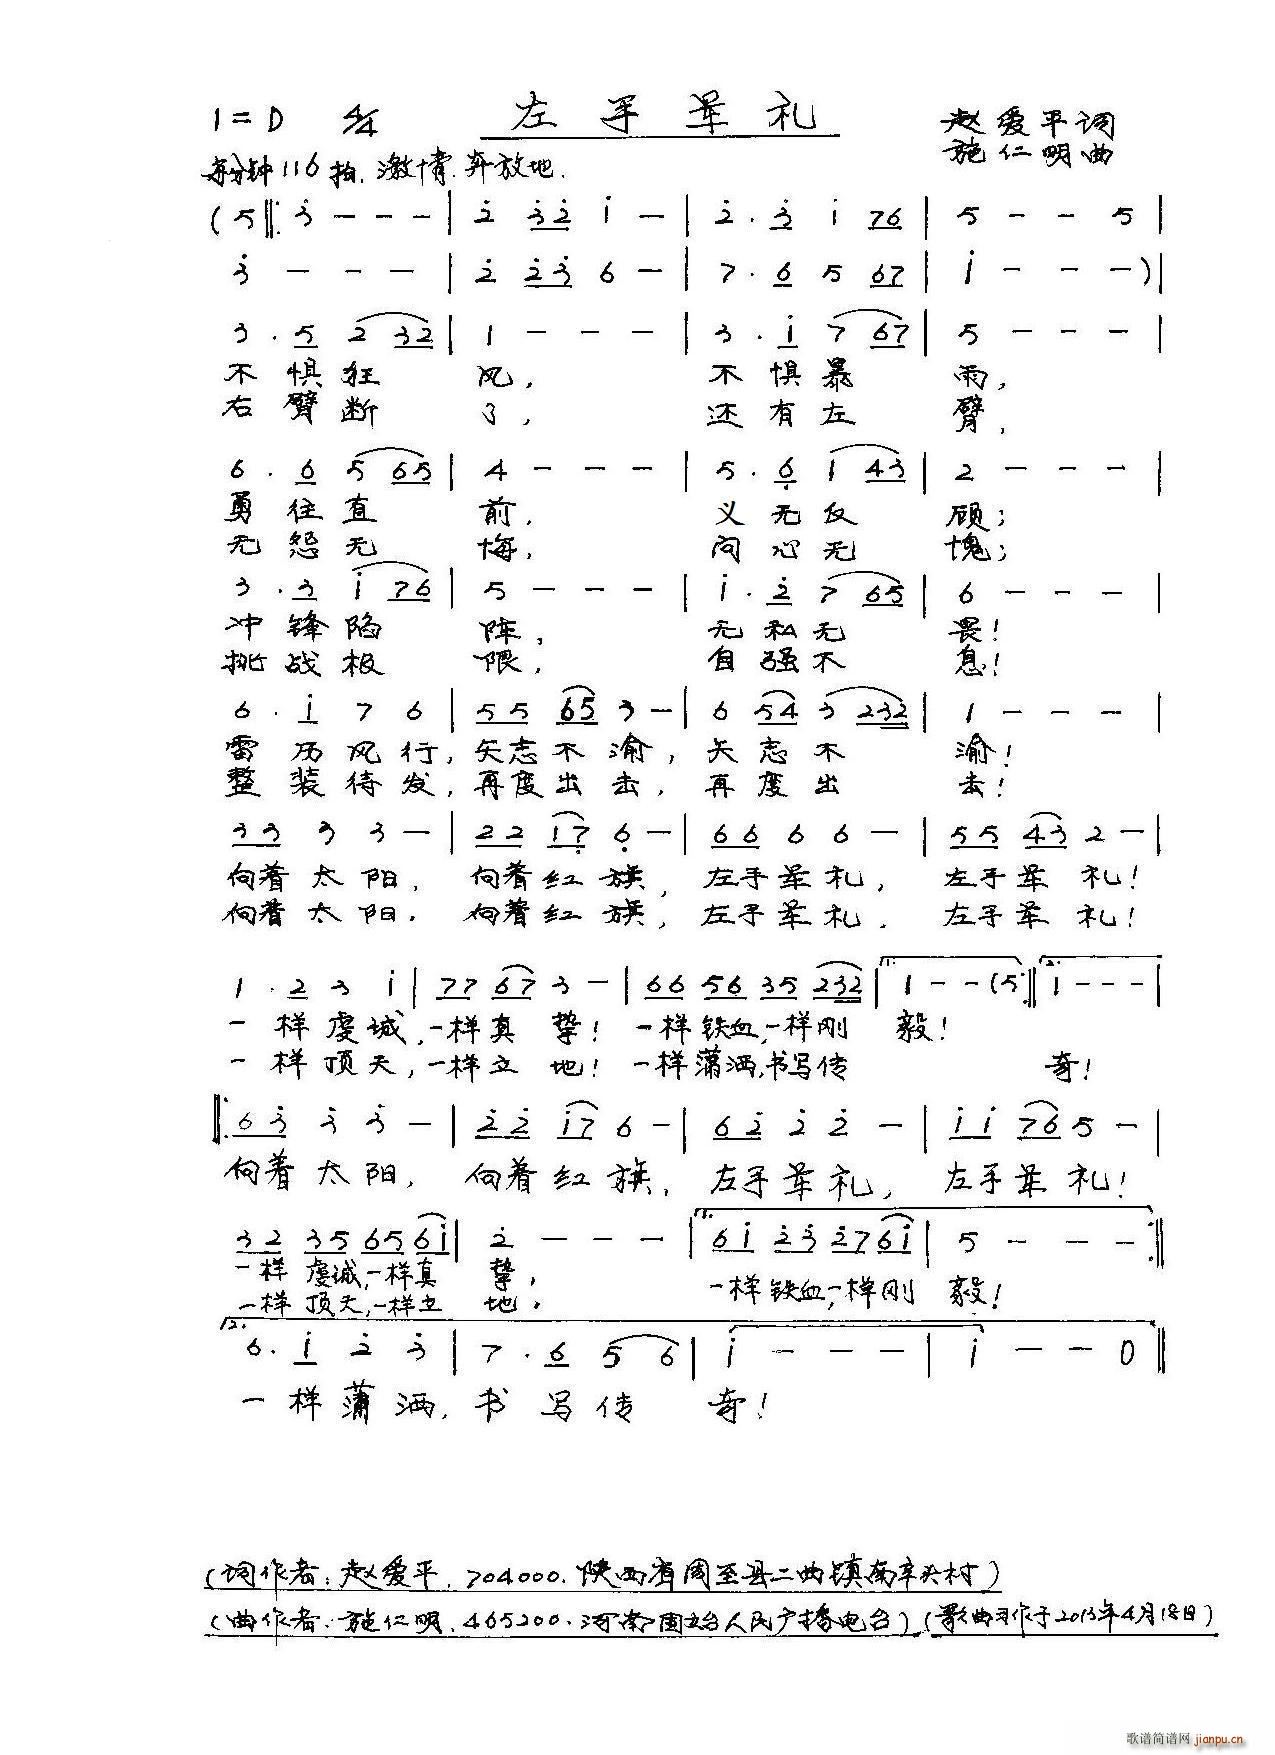 1=D 4/4 左手军礼 赵爱平词
施仁明曲
每分钟116拍. 激情.奔放地.
(5 ‖: 3̇ - - - | 2̇ 3̇2̇ 1̇ - | 2̇ . 3̇ 1̇ 76 | 5 - - 5 |
3̇ - - - | 2̇ 2̇3̇ 6 - | 7 . 6 5 67 | 1̇ - - - ) |
3 . 5 2 32 | 1 - - - | 3 . 1̇ 7 67 | 5 - - - |
不惧狂 风, 不惧暴 雨,
右臂断 了, 还有左 臂,
6 . 6 5 65 | 4 - - - | 5 . 6̣ 1 43 | 2 - - - |
勇往直 前, 义无反 顾;
无怨无 悔, 问心无 愧;
3 . 3 1̇ 76 | 5 - - - | 1̇ . 2̇ 7 65 | 6 - - - |
冲锋陷 阵, 无私无 畏!
挑战极 限, 自强不 息!
6 . 1̇ 7 6 | 55 65 3 - | 6 54 3 232 | 1 - - - |
雷厉风行, 矢志不渝, 矢志不 渝!
整装待发, 再度出击, 再度出 击!
33 3 3 - | 22 17̣ 6̣ - | 66 6 6 - | 55 43 2 - |
向着太阳, 向着红旗, 左手军礼, 左手军礼!
向着太阳. 向着红旗, 左手军礼. 左手军礼!
1 . 2 3 1̇ | 77 67 3 - | 66 56 35 232 | 1. 1 - - (5 :‖ 2. 1 - - - |
一样虔诚, 一样真挚! 一样铁血, 一样刚 毅!
一样顶天, 一样立地! 一样潇洒, 书写传 奇!
‖: 63̇ 3̇ 3̇ - | 2̇2̇ 1̇7 6 - | 62̇ 2̇ 2̇ - | 1̇1̇ 76 5 - |
向着太阳, 向着红旗, 左手军礼, 左手军礼!
32 35 65 61̇ | 2̇ - - - | 1. 61̇ 2̇3̇ 2̇7 61̇ | 5 - - - :‖
一样虔诚, 一样真 挚, 一样铁血, 一样刚 毅!
一样顶天, 一样立 地.
2. 6 . 1̇ 2̇ 3̇ | 7 . 6 5 6 | 1̇ - - - | 1̇ - - 0 ‖
一样潇洒, 书写传 奇!
(词作者: 赵爱平. 704000. 陕西省周至县二曲镇南辛头村)
(曲作者: 施仁明. 465200. 河南固始人民广播电台) (歌曲习作于2013年4月18日)
歌谱简谱网 jianpu.cn